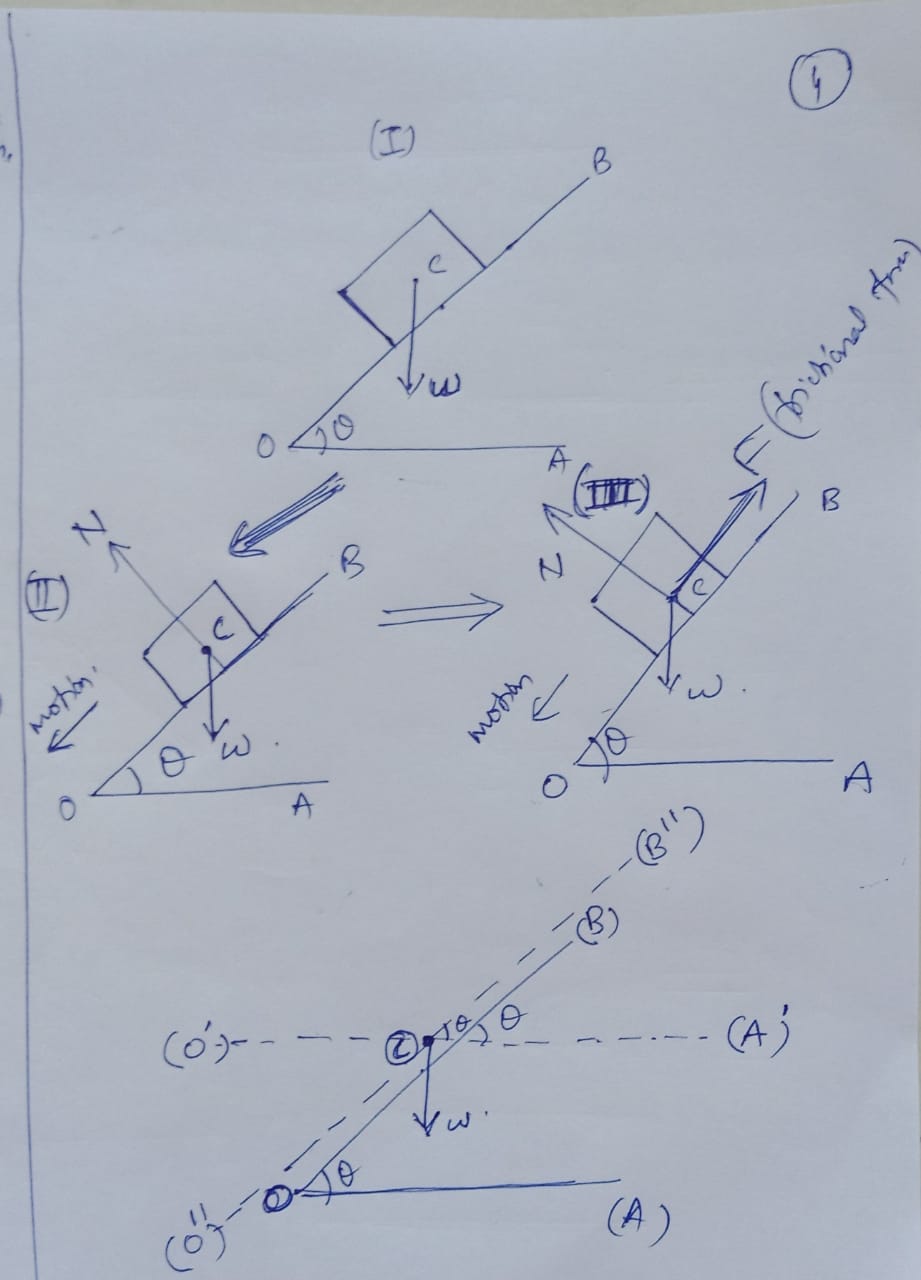 (4)
(I)
B
C
W
O θ A
(II)
N
B
C
motion.
W.
θ
O
A
(III)
F (frictional force)
N
B
C
motion
W.
θ
O
A
(B'')
(B)
(O') C θ θ (A')
W.
O θ
(A)
(O'')